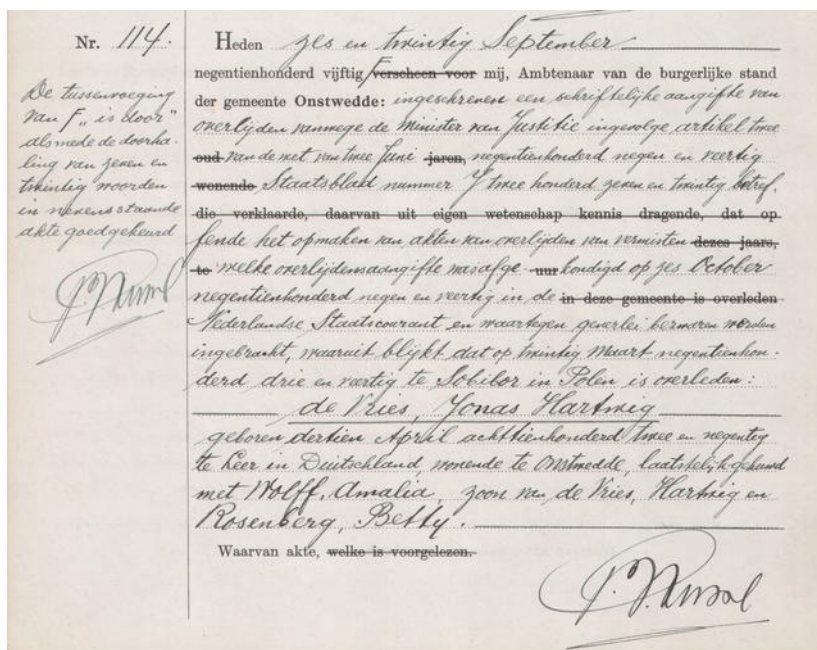 Nr. 114.
De tussenvoeging
van F "is door"
alsmede de doorha-
ling van zeven en
twintig woorden
in nevensstaande
akte goedgekeurd
Heden zes en twintig September
negentienhonderd vijftig F verscheen voor mij, Ambtenaar van de burgerlijke stand
der gemeente Onstwedde: ingeschreven een schriftelijke aangifte van
overlijden vanwege de Minister van Justitie ingevolge artikel twee
oud van de wet van twee Juni jaren, negentienhonderd negen en veertig
wonende Staatsblad nummer J twee honderd zeven en twintig betref.
die verklaarde, daarvan uit eigen wetenschap kennis dragende, dat op
fende het opmaken van akten van overlijden van vermisten dezes jaars,
te welke overlijdensaangifte was afge uur kondigd op zes October
negentienhonderd negen en veertig in de in deze gemeente is overleden
Nederlandse Staatscourant en waartegen generlei bezwaren worden
ingebracht, waaruit blijkt dat op twintig Maart negentienhon-
derd drie en veertig te Sobibor in Polen is overleden:
de Vries, Jonas Hartwig
geboren dertien April achttienhonderd twee en negentig
te Leer in Duitschland, wonende te Onstwedde, laatstelijk gehuwd
met Wolff, Amalia, zoon van de Vries, Hartwig en
Rosenberg, Betty.
Waarvan akte, welke is voorgelezen.